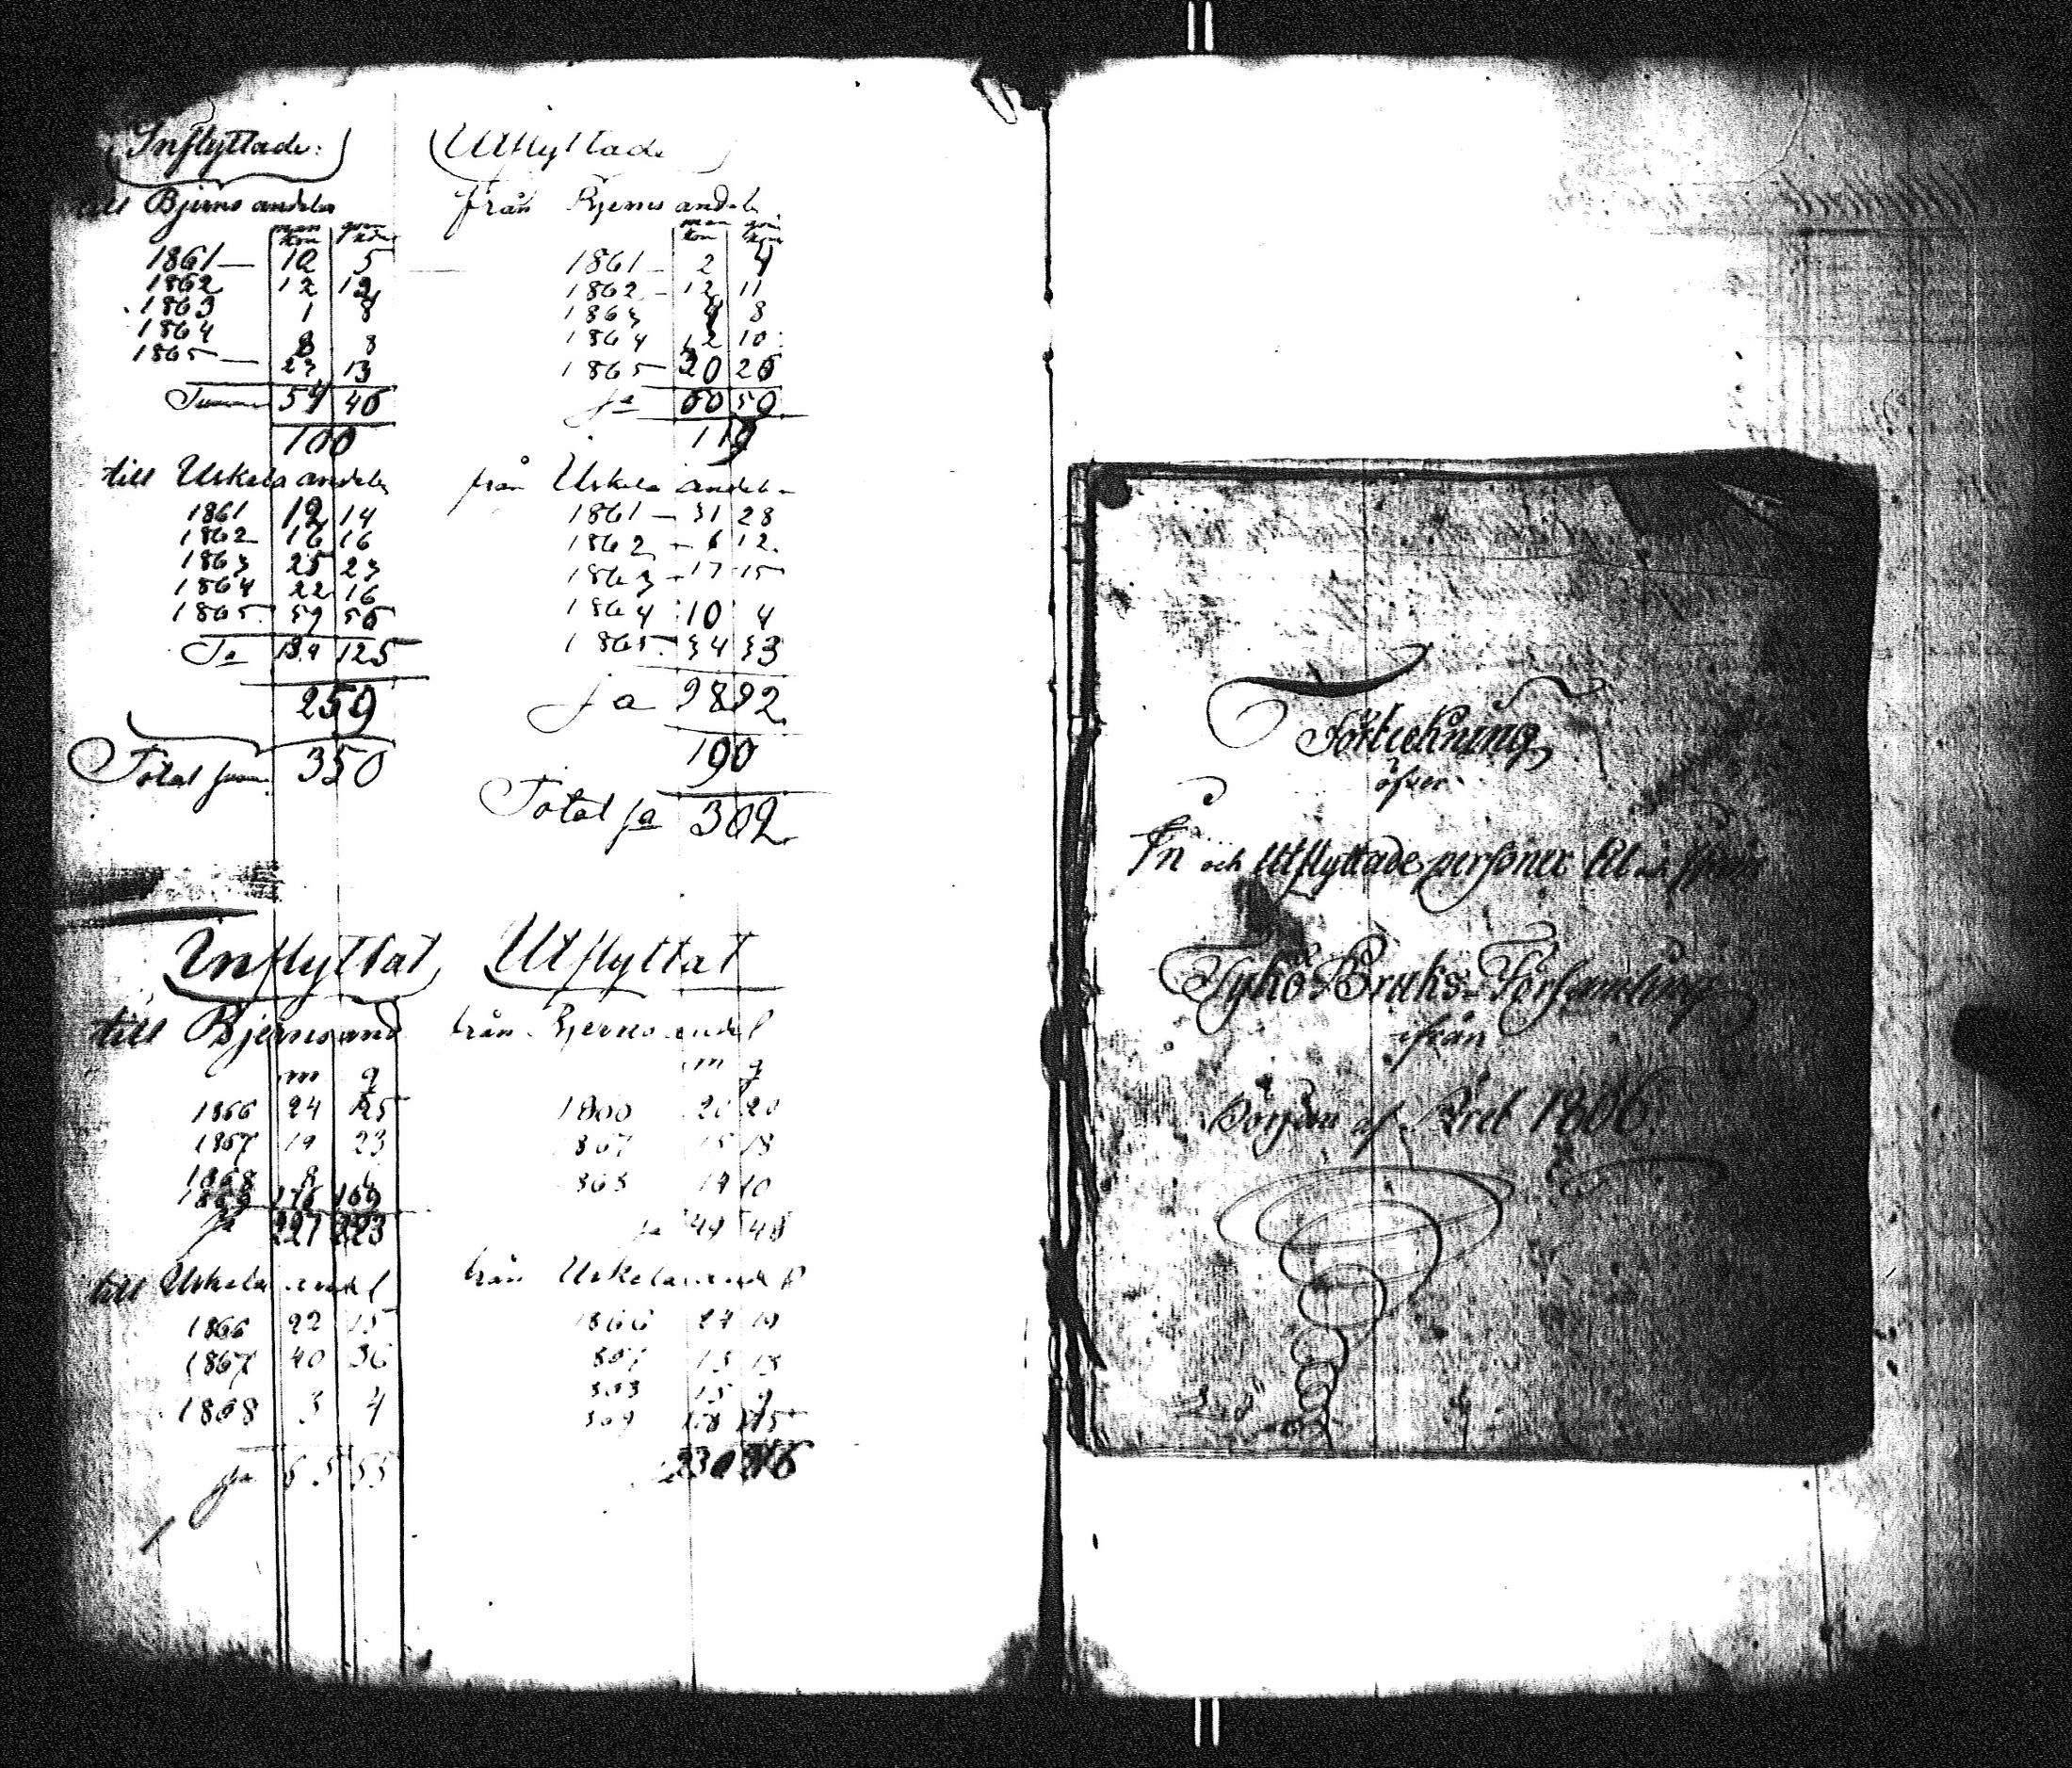 Inflyttade:
till Bjerno andelen
man kön qvin kön
1861 — 10 5
1862 12 12
1863 1 8
1864 8 8
1865 — 23 13
Summa 54 46
100
till Uskela andelen
1861 12 14
1862 16 16
1863 25 23
1864 22 16
1865 59 56
Sa 134 125
259
Total summ. 350
Utflyttade
från Bjerno andelen
man kön qvin kön
1861 — 2 4
1862 — 12 11
1863 4 8
1864 12 10
1865 — 30 26
Sa 60 59
119
från Uskela andelen
1861 — 31 28
1862 — 6 12
1863 — 17 15
1864 10 4
1865 34 33
Sa 98 92
190
Total Sa 309
Inflyttat
till Bjerno and
m q
1866 24 25
1867 19 23
1868 8 6
1869 176 169
Sa 227 223
till Uskela andel
1866 22 15
1867 40 36
1868 3 4
Sa 65 55
Utflyttat
från Bjerno andel
m q
1866 20 20
867 15 18
868 14 10
Sa 49 48
från Uskela andel
1866 19
867 13 13
868 15 9
869
230
Förteckning
öfver
In och Utflyttade personer til och ifrån
Tykö Bruks Församling
ifrån
Början af Året 1806